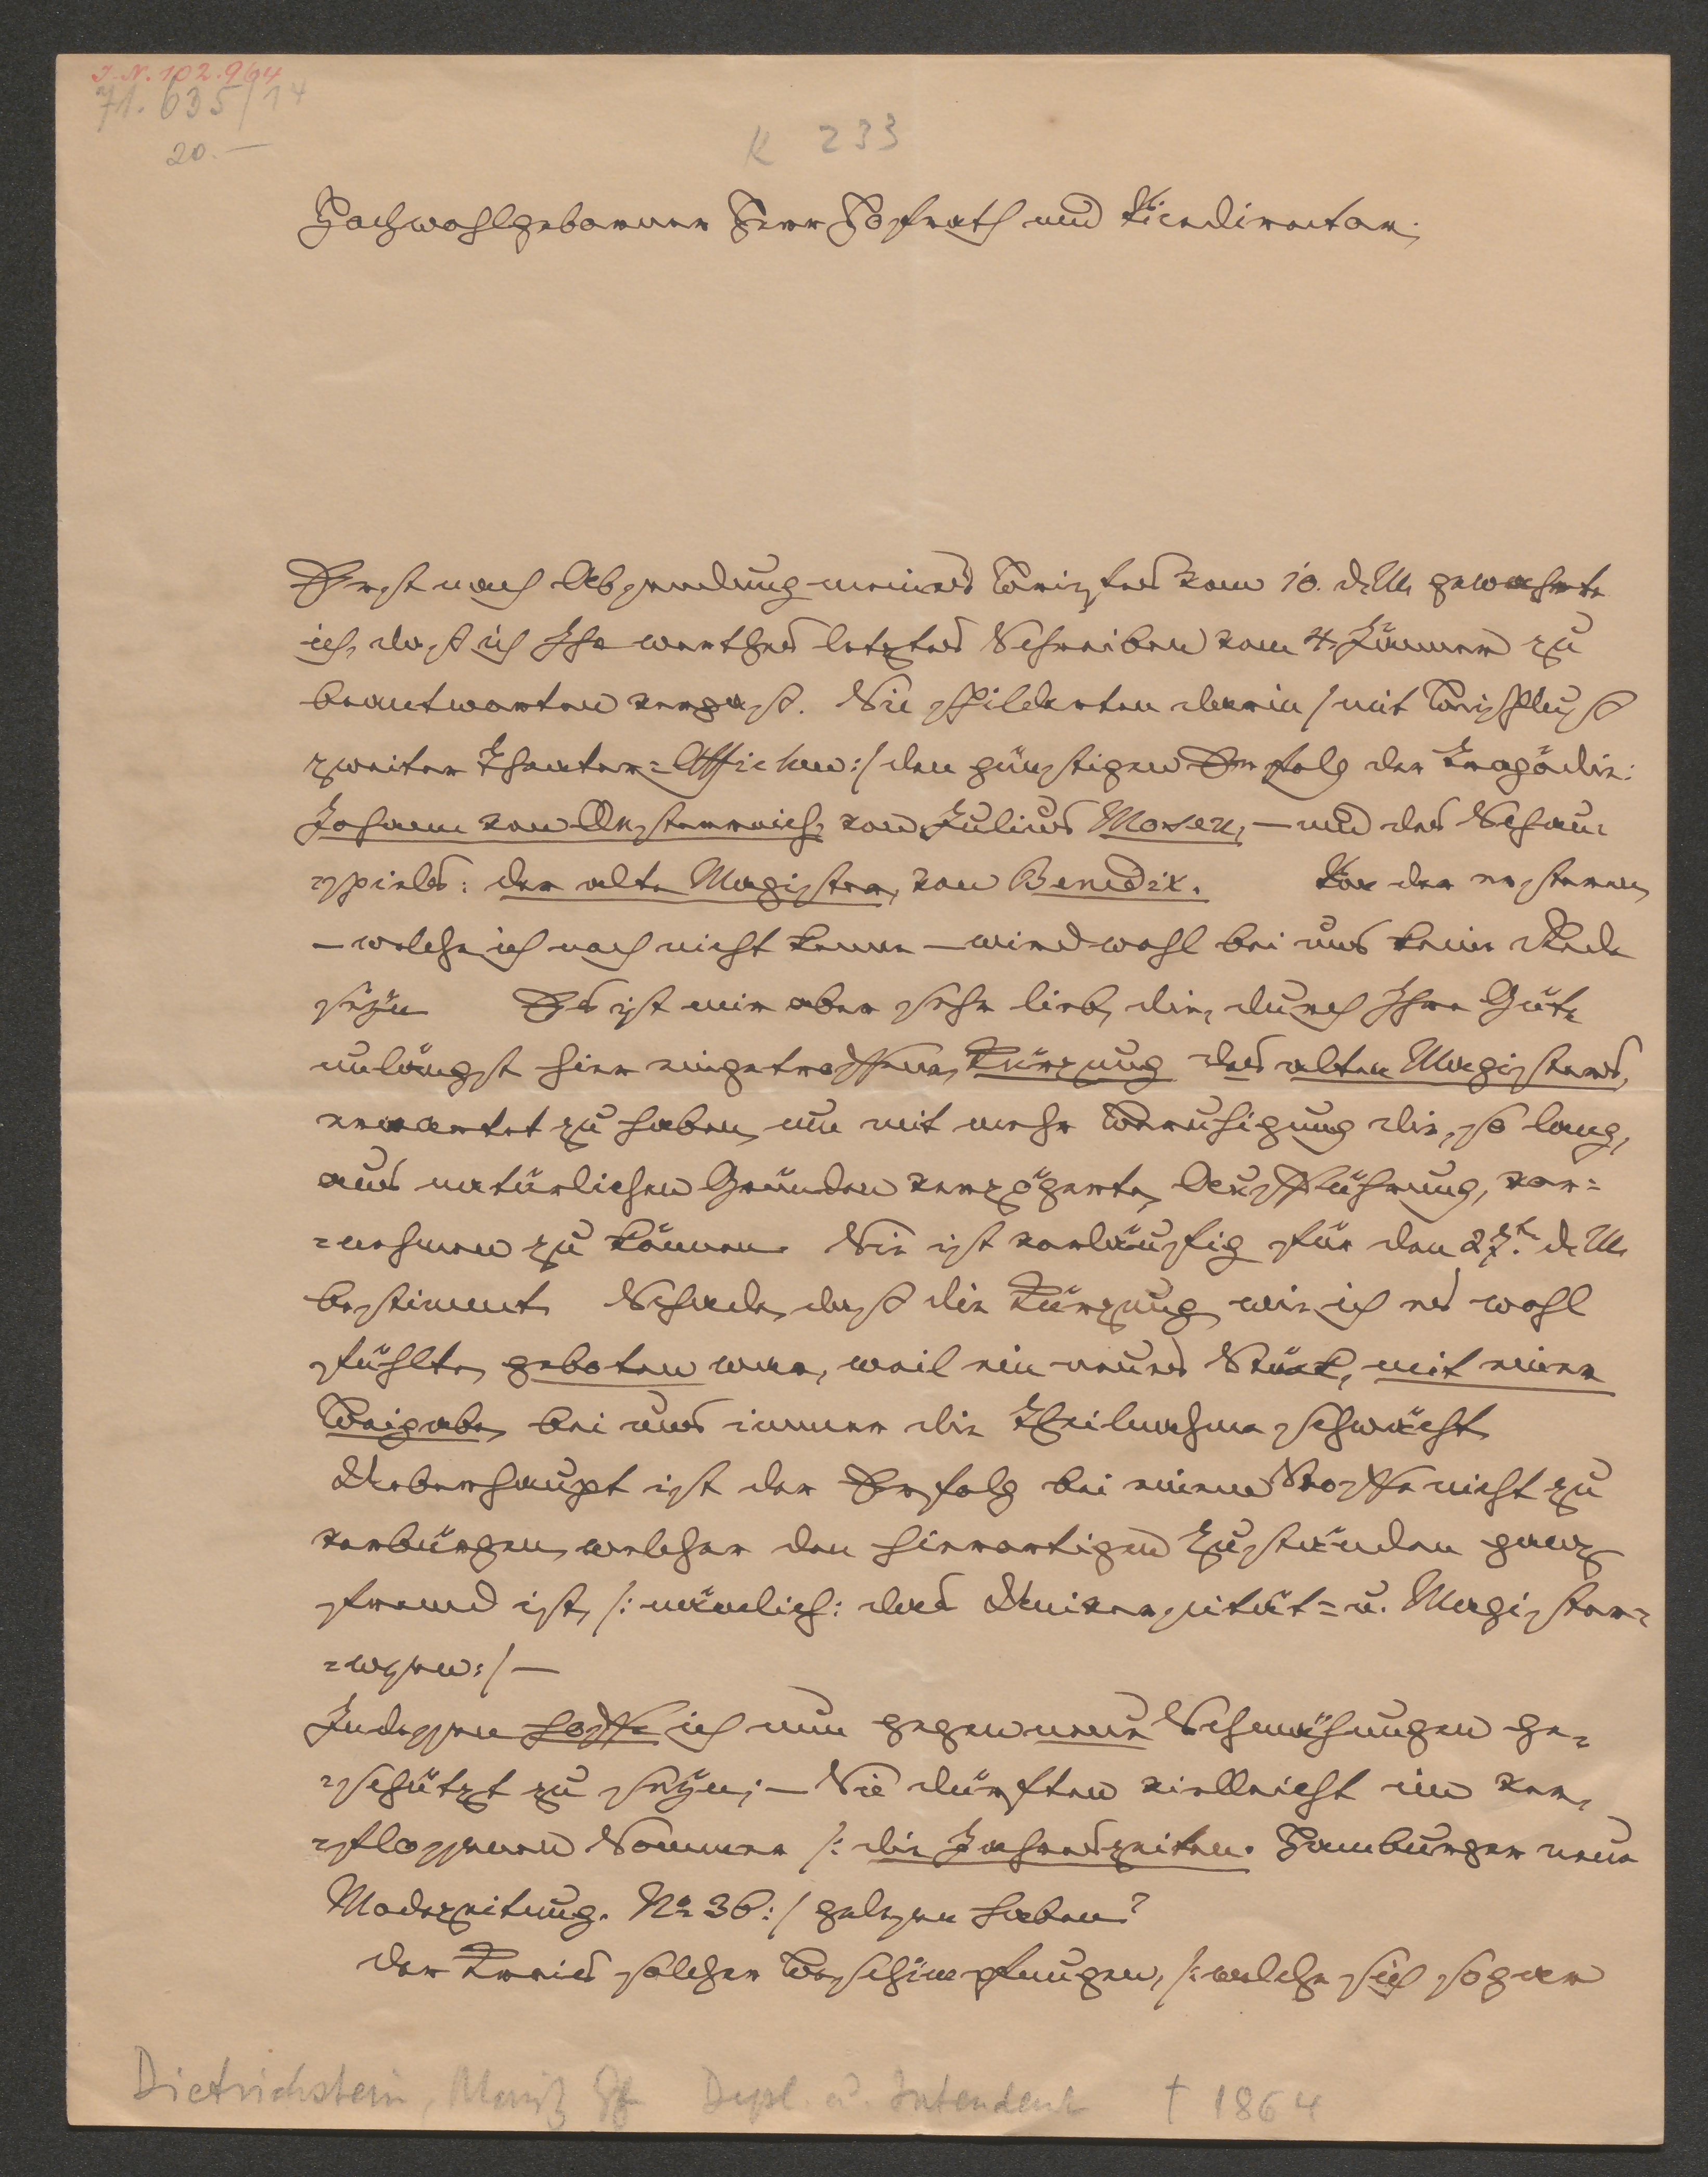 I.N. 102.964
71.635/14
20.—
K 233
Hochwohlgeborner Herr Hofrath und Vicedirector,
Erst nach Absendung meines Briefes vom 10. d. M. gewahrte
ich, daß ich Ihr werthes letztes Schreiben vom 4. Jänner zu
beantworten vergaß. Sie schilderten darin /: mit Beischluß
zweiter Theater=Affichen :/ den günstigen Erfolg der Tragödie:
Johann von Oesterreich, von Julius Mosen, — und des Schau=
=spieles: der alte Magister, von Benedix. Von der ersteren,
— welche ich noch nicht kenne — wird wohl bei uns keine Rede
seyn. Es ist mir aber sehr lieb, die, durch Ihre Güte
unlängst hier eingetroffene, Kürzung des alten Magisters,
erwartet zu haben, um mit mehr Beruhigung die, so lang,
aus natürlichen Gründen verzögerte, Aufführung, vor=
=nehmen zu können. Sie ist vorläufig für den 27.t d. M.
bestimmt. Schade, daß die Kürzung, wie ich es wohl
fühlte, geboten war, weil ein neues Stück, mit einer
Beigabe, bei uns immer die Theilnahme schwächt.
Ueberhaupt ist der Erfolg bei einem Stoffe nicht zu
verbürgen, welcher den hierortigen Zuständen ganz
fremd ist, /: nämlich: das Universität= u. Magister=
=wesen :/ —
Indessen hoffe ich nun gegen neue Schmähungen ge=
=schützt zu seyn; — Sie dürften vielleicht im ver=
=flossenen Sommer /: die Jahreszeiten. Hamburger neue
Modezeitung. No 36 :/ gelesen haben?
Der Kreis solcher Beschimpfungen, /: welche sich sogar
Dietrichstein, Moriz Gf Dipl. u. Intendent † 1864